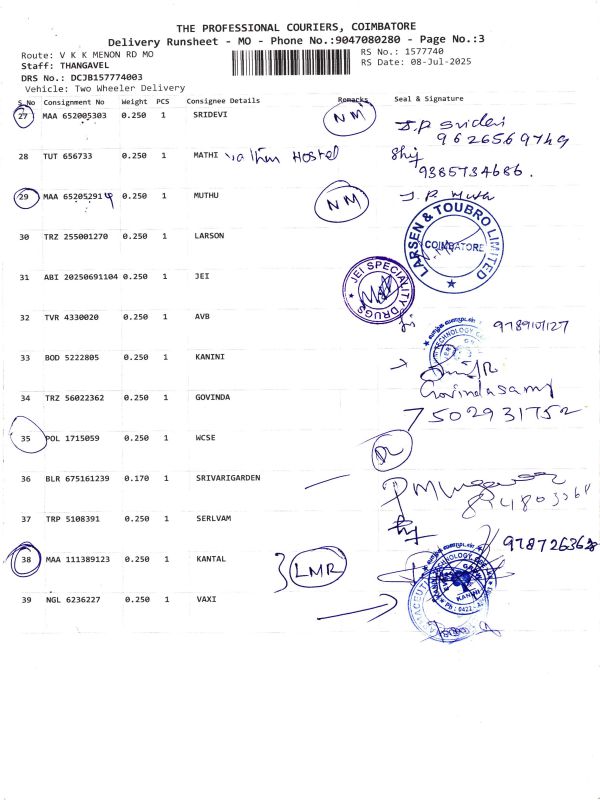 THE PROFESSIONAL COURIERS, COIMBATORE
Delivery Runsheet - MO - Phone No.:9047080280 - Page No.:3
Route: V K K MENON RD MO RS No.: 1577740
Staff: THANGAVEL RS Date: 08-Jul-2025
DRS No.: DCJB157774003
Vehicle: Two Wheeler Delivery
S No Consignment No Weight PCS Consignee Details Remarks Seal & Signature
27 MAA 652005303 0.250 1 SRIDEVI NM J.P Sridevi
9626569749
28 TUT 656733 0.250 1 MATHI Hostel
9385734686.
29 MAA 65205291 0.250 1 MUTHU NM J.P.
LARSEN & TOUBRO LIMITED
COIMBATORE
30 TRZ 255001270 0.250 1 LARSON
31 ABI 20250691104 0.250 1 JEI
JEI SPECIALITY DRUGS
32 TVR 4330020 0.250 1 AVB
9789101127
33 BOD 5222805 0.250 1 KANINI
34 TRZ 56022362 0.250 1 GOVINDA Govindasamy
7502931752
35 POL 1715059 0.250 1 WCSE DL
36 BLR 675161239 0.170 1 SRIVARIGARDEN
37 TRP 5108391 0.250 1 SERLVAM
9787263628
38 MAA 111389123 0.250 1 KANTAL LMR
39 NGL 6236227 0.250 1 VAXI